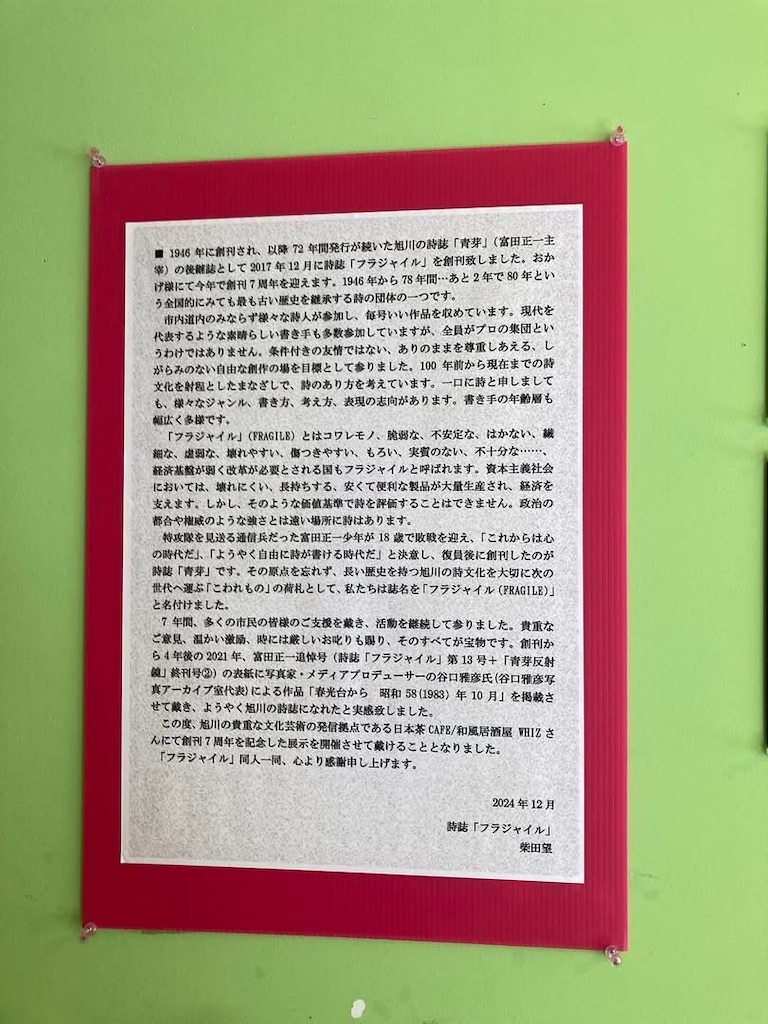 ■ 1946年に創刊され、以降72年間発行が続いた旭川の詩誌「青芽」(富田正一主
宰)の後継誌として2017年12月に詩誌「フラジャイル」を創刊致しました。おか
げ様にて今年で創刊7周年を迎えます。1946年から78年間…あと2年で80年とい
う全国的にみても最も古い歴史を継承する詩の団体の一つです。
市内道内のみならず様々な詩人が参加し、毎号いい作品を収めています。現代を
代表するような素晴らしい書き手も多数参加していますが、全員がプロの集団とい
うわけではありません。条件付きの友情ではない、ありのままを尊重しあえる、し
がらみのない自由な創作の場を目標として参りました。100年前から現在までの詩
文化を射程としたまなざしで、詩のあり方を考えています。一口に詩と申しまして
も、様々なジャンル、書き方、考え方、表現の志向があります。書き手の年齢層も
幅広く多様です。
「フラジャイル」(FRAGILE)とはコワレモノ、脆弱な、不安定な、はかない、繊
細な、虚弱な、壊れやすい、傷つきやすい、もろい、実質のない、不十分な……、
経済基盤が弱く改革が必要とされる国もフラジャイルと呼ばれます。資本主義社会
においては、壊れにくい、長持ちする、安くて便利な製品が大量生産され、経済を
支えます。しかし、そのような価値基準で詩を評価することはできません。政治の
都合や権威のような強さとは遠い場所に詩はあります。
特攻隊を見送る通信兵だった富田正一少年が18歳で敗戦を迎え、「これからは心
の時代だ」、「ようやく自由に詩が書ける時代だ」と決意し、復員後に創刊したのが
詩誌「青芽」です。その原点を忘れず、長い歴史を持つ旭川の詩文化を大切に次の
世代へ運ぶ「こわれもの」の荷札として、私たちは誌名を「フラジャイル(FRAGILE)」
と名付けました。
7年間、多くの市民の皆様のご支援を戴き、活動を継続して参りました。貴重な
ご意見、温かい激励、時には厳しいお叱りも賜り、そのすべてが宝物です。創刊か
ら4年後の2021年、富田正一追悼号(詩誌「フラジャイル」第13号+「青芽反射
鏡」終刊号②)の表紙に写真家・メディアプロデューサーの谷口雅彦氏(谷口雅彦写
真アーカイブ室代表)による作品「春光台から 昭和58(1983)年10月」を掲載さ
せて戴き、ようやく旭川の詩誌になれたと実感致しました。
この度、旭川の貴重な文化芸術の発信拠点である日本茶CAFE/和風居酒屋 WHIZさ
んにて創刊7周年を記念した展示を開催させて戴けることとなりました。
「フラジャイル」同人一同、心より感謝申し上げます。
2024年12月
詩誌「フラジャイル」
柴田望